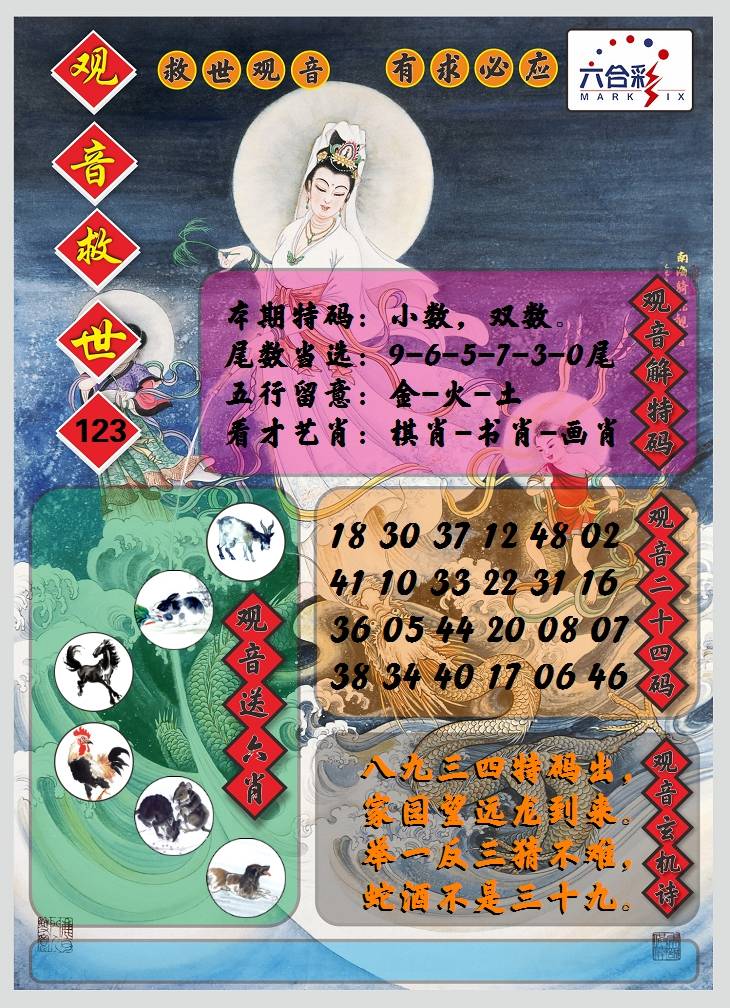 观音救世
123
救世观音 有求必应
六合彩
MARK SIX
观音解特码
本期特码：小数，双数。
尾数当选：9-6-5-7-3-0尾
五行留意：金-火-土
看才艺肖：棋肖-书肖-画肖
观音送六肖
观音二十四码
18 30 37 12 48 02
41 10 33 22 31 16
36 05 44 20 08 07
38 34 40 17 06 46
观音玄机诗
八九三四特码出，
家园望远龙到来。
举一反三猜不难，
蛇酒不是三十九。